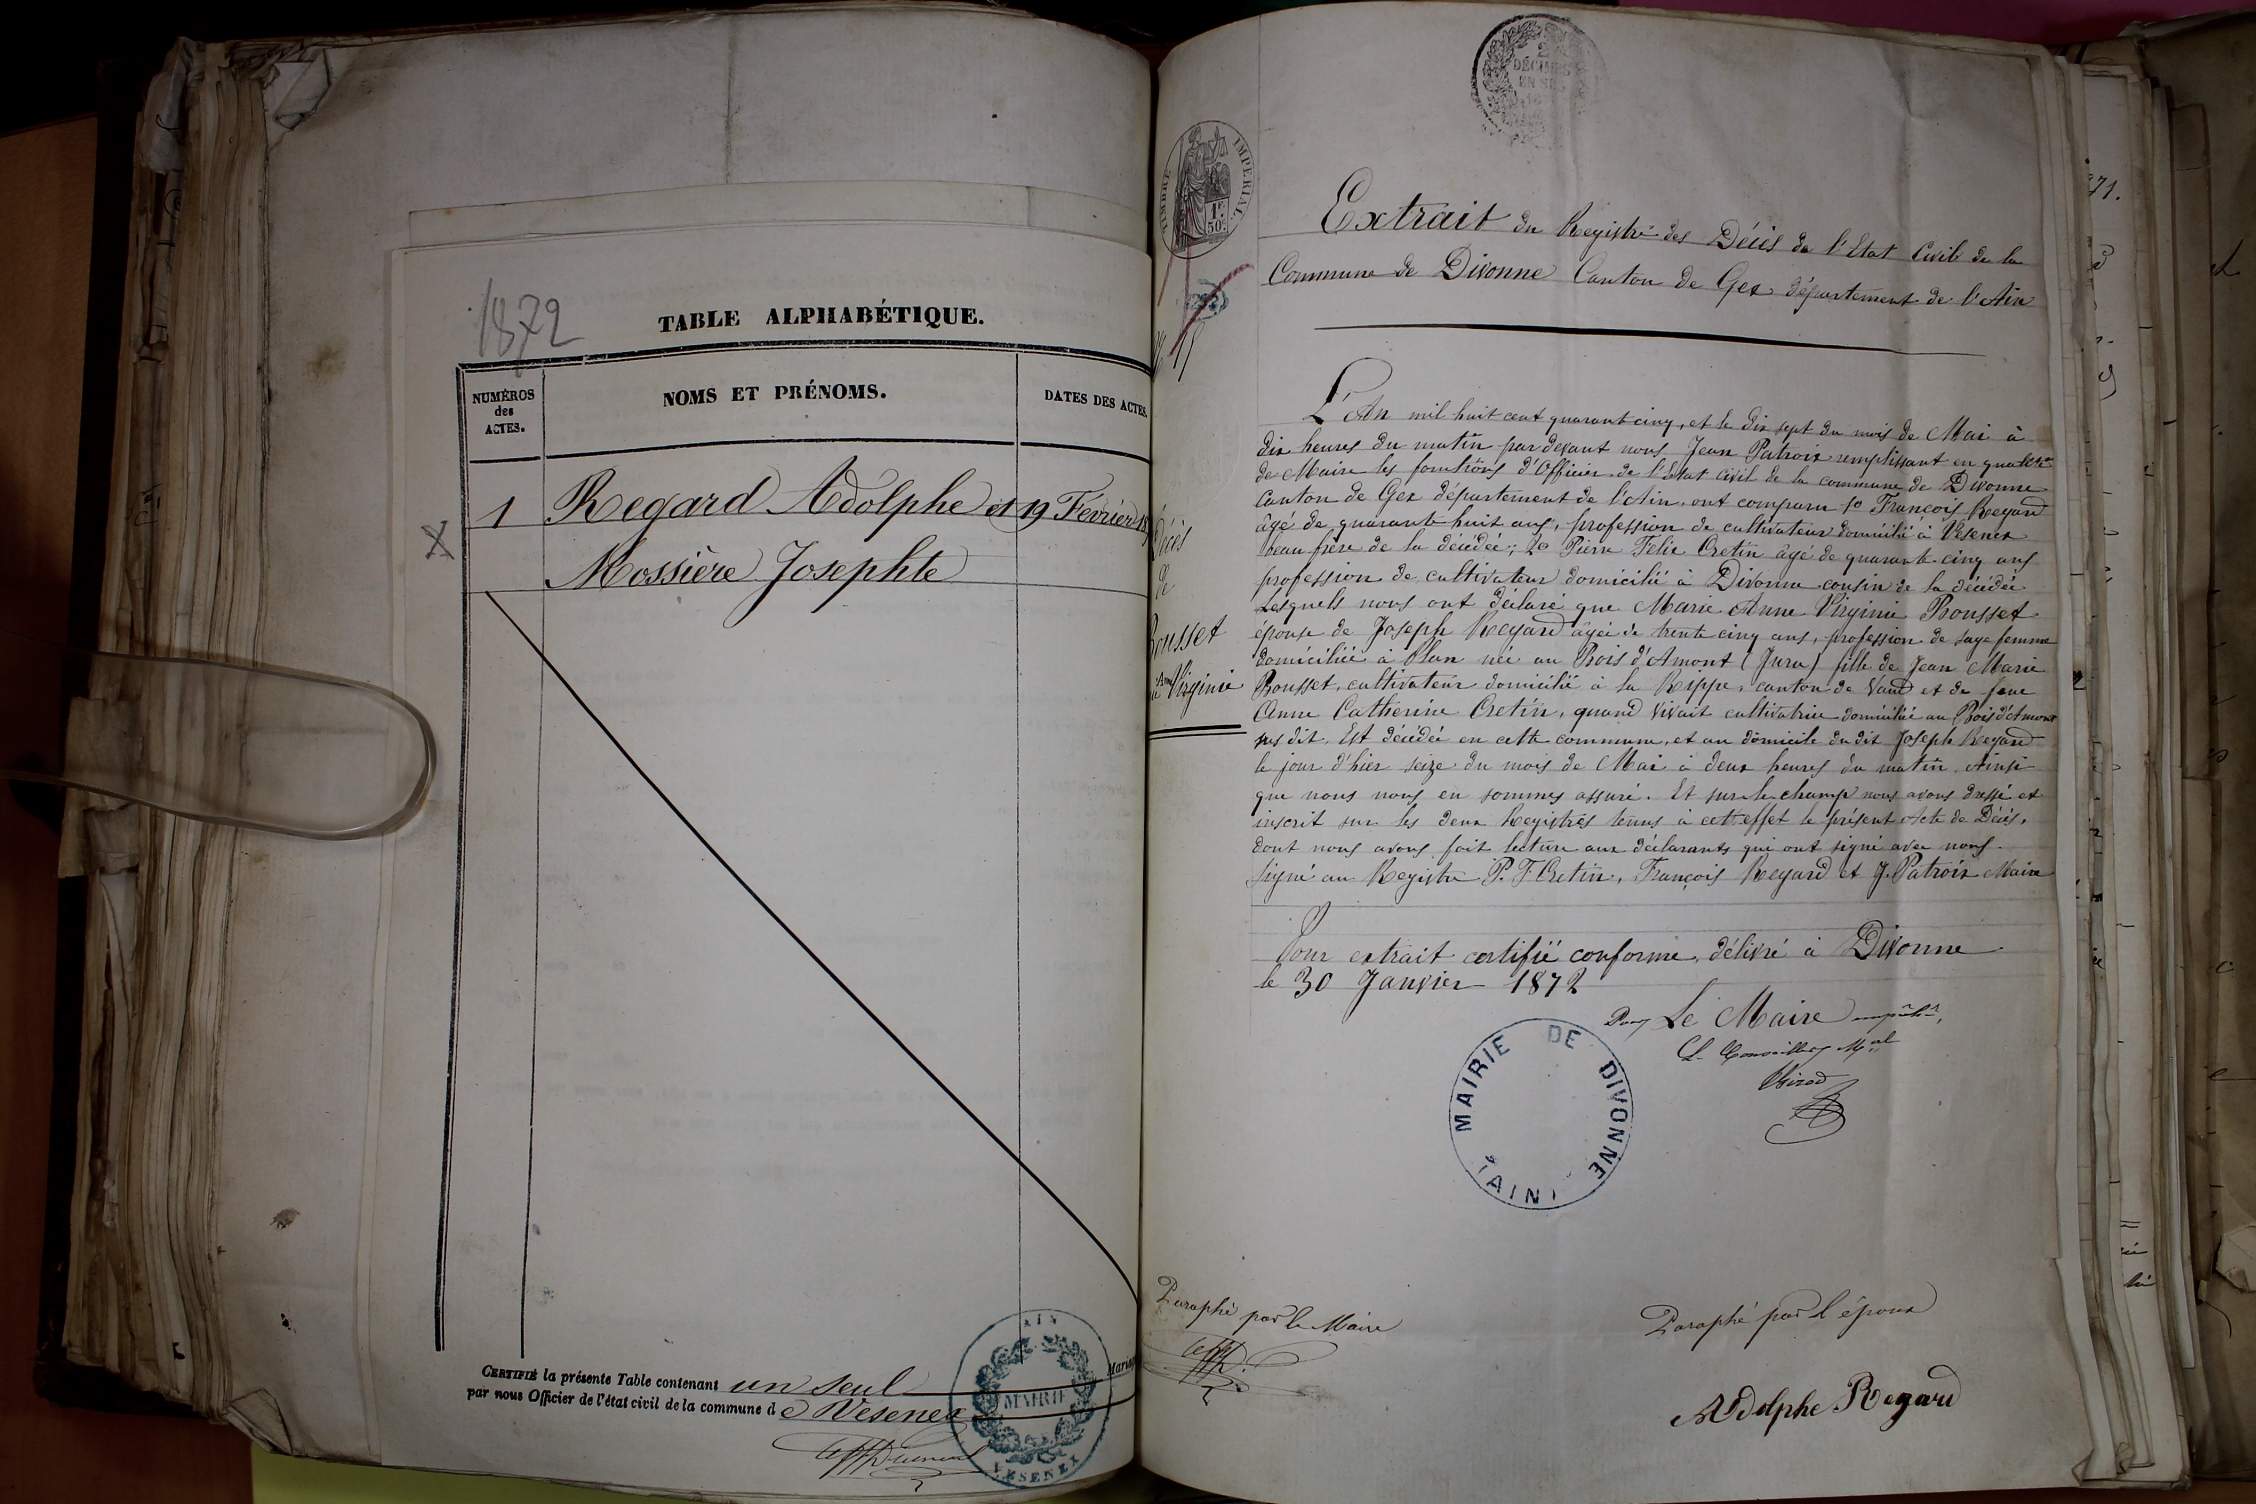 1872
TABLE ALPHABÉTIQUE.
NUMÉROS
des
ACTES.
NOMS ET PRÉNOMS.
DATES DES ACTES.
1
Regard Adolphe et
19 Février
Mossière Josephte
CERTIFIÉ la présente Table contenant un seul
par nous Officier de l'état civil de la commune d e Vesenex
AIN
MAIRIE
VESENEX
2
DÉCIMES
EN SUS
TIMBRE IMPÉRIAL
1F
50C
Extrait du Registre des Décès de l'Etat Civil de la
Commune de Divonne Canton de Gex département de l'Ain
Décès
de
Rousset
Virginie
L'An mil huit cent quarant cinq, et le dix sept du mois de Mai à
dix heures du matin par devant nous Jean Patroix remplissant en qualité
de Maire les fonctions d'Officier de l'Etat Civil de la commune de Divonne
Canton de Gex département de l'Ain, ont comparu 1o François Regard
âgé de quarante huit ans, profession de cultivateur domicilié à Vésenex
beau frère de la décédée; 2o Pierre Félix Cretin âgé de quarante cinq ans
profession de cultivateur domicilié à Divonne cousin de la décédée
Lesquels nous ont déclaré que Marie Anne Virginie Rousset
épouse de Joseph Regard âgée de trente cinq ans, profession de sage femme
domiciliée à Plan née au Bois d'Amont (Jura) fille de Jean Marie
Rousset, cultivateur domicilié à la Rippe, canton de Vaud et de feue
Anne Catherine Cretin, quand vivait cultivatrice domiciliée au Bois d'Amont
sus dit. Est décédée en cette commune, et au domicile du dit Joseph Regard
le jour d'hier seize du mois de Mai à deux heures du matin. Ainsi
que nous nous en sommes assuré. Et sur le champ nous avons dressé et
inscrit sur les deux Registres tenus à cet effet le présent Acte de Décès,
dont nous avons fait lecture aux déclarants qui ont signé avec nous.
Signé au Registre P. F. Cretin, François Regard et J. Patroix Maire
Pour extrait certifié conforme, délivré à Divonne
le 30 Janvier 1872
Pour Le Maire empêché,
Le Conseiller Mal
MAIRIE DE DIVONNE
(AIN)
Paraphé par le Maire
Paraphé par l'époux
Adolphe Regard